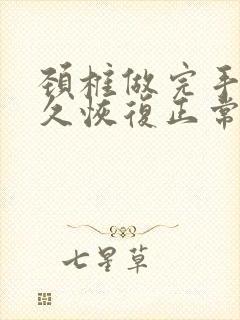 颈椎做完手
久恢復正常
七星草